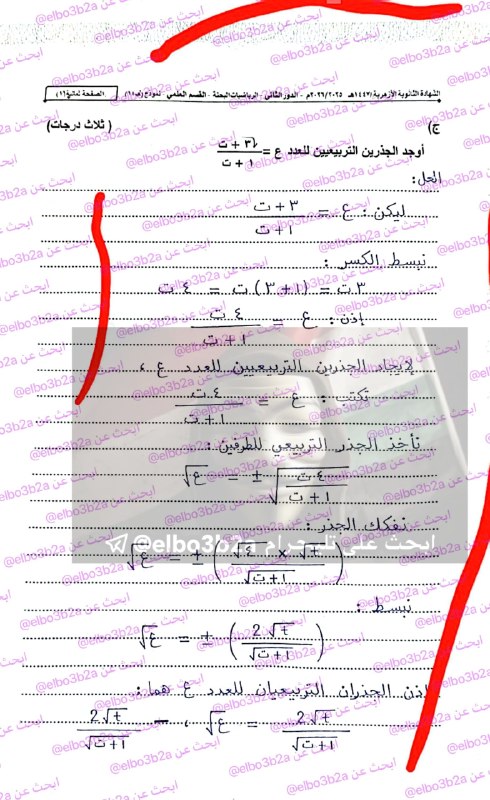 الشهادة الثانوية الأزهرية ١٤٤٧هـ / ٢٠٢٥/٢٠٢٦م - الدور الثاني - الرياضيات البحتة - القسم العلمي - نموذج (١٠٠) الصفحة ثمانية (١٦)
ج) (ثلاث درجات)
أوجد الجذرين التربيعيين للعدد ع = (٣√ + ت) / (١ + ت)
الحل:
ليكن: ع = (٣ + ت) / (١ + ت)
نبسط الكسر:
٣ ت = (١ + ٣) ت = ٤ ت
إذن: ع = ٤ ت / (١ + ت)
لإيجاد الجذرين التربيعيين للعدد ع ،
نكتب: ع = ٤ ت / (١ + ت)
نأخذ الجذر التربيعي للطرفين:
√ع = ± √(٤ ت / (١ + ت))
نفكك الجذر:
√ع = ± (√٤ × √t / √(١ + ت))
نبسط:
√ع = ± (2√t / √(١ + ت))
إذن الجذران التربيعيان للعدد ع هما:
2√t / √(١ + ت) = √ع ، - 2√t / √(١ + ت)
ابحث على تلجرام @elbo3b2a
ابحث عن @elbo3b2a